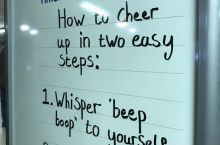 How to cheer
up in two easy
steps:
1. Whisper 'beep
boop' to yourself